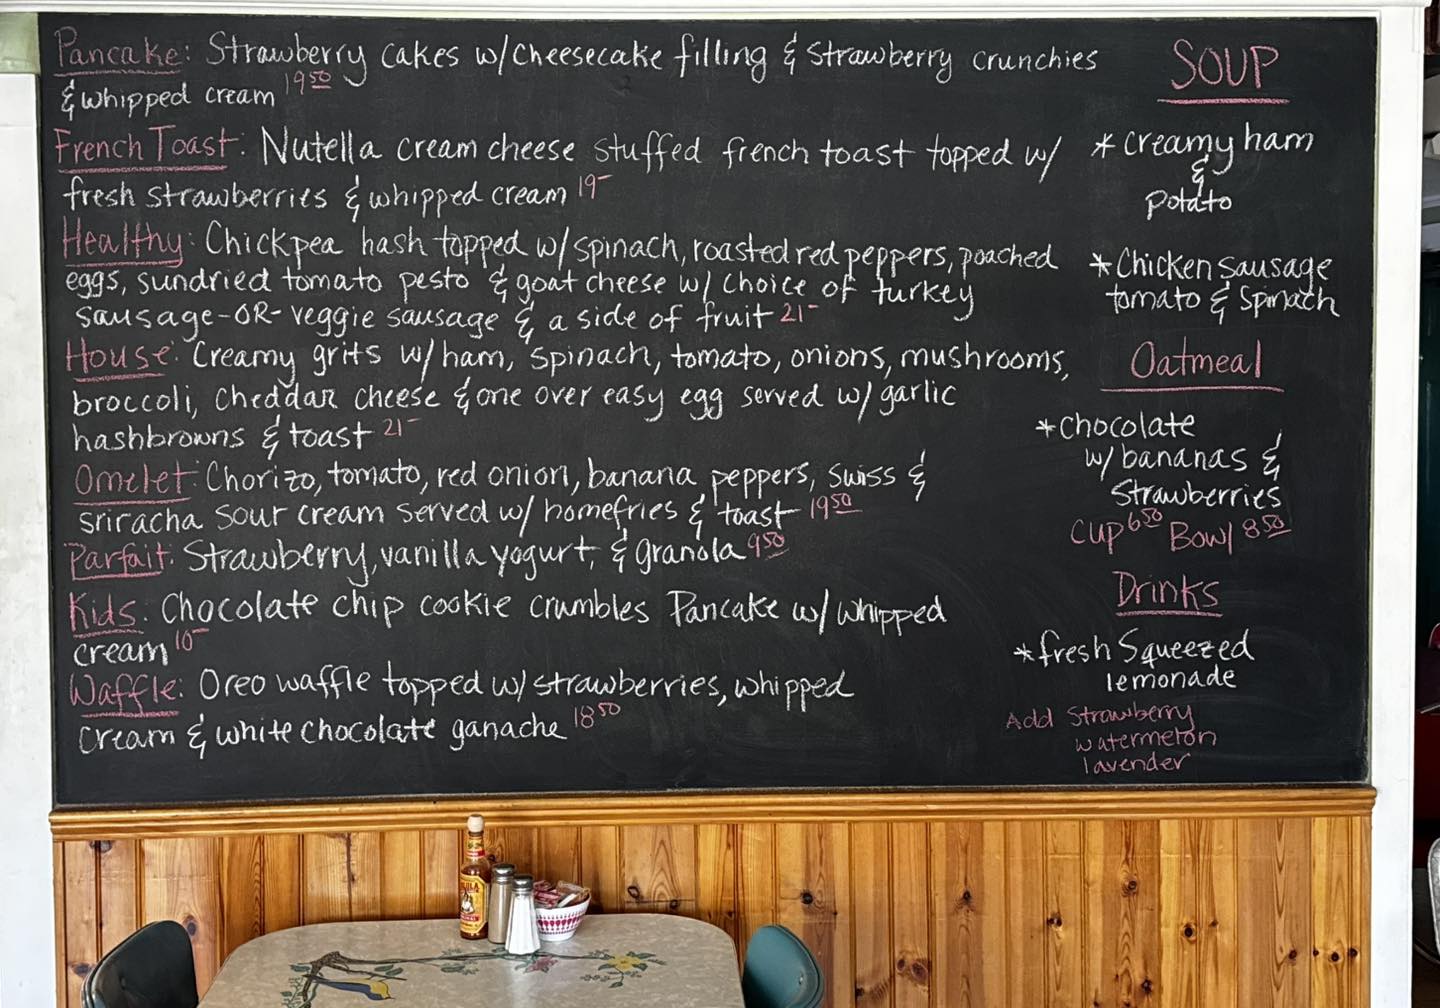 Pancake: Strawberry cakes w/cheesecake filling & strawberry crunchies
& whipped cream 19 50
French Toast: Nutella cream cheese stuffed french toast topped w/
fresh strawberries & whipped cream 19-
Healthy: Chickpea hash topped w/spinach, roasted red peppers, poached
eggs, sundried tomato pesto & goat cheese w/ choice of turkey
sausage -OR- veggie sausage & a side of fruit 21-
House: Creamy grits w/ham, spinach, tomato, onions, mushrooms,
broccoli, cheddar cheese & one over easy egg served w/ garlic
hashbrowns & toast 21-
Omelet: Chorizo, tomato, red onion, banana peppers, swiss &
sriracha sour cream served w/ homefries & toast 19 50
Parfait: Strawberry, vanilla yogurt, & granola 9 50
Kids: Chocolate chip cookie crumbles Pancake w/ whipped
cream 10-
Waffle: Oreo waffle topped w/ strawberries, whipped
cream & white chocolate ganache 18 50
SOUP
* creamy ham
&
potato
* Chicken sausage
tomato & Spinach
Oatmeal
* chocolate
w/ bananas &
Strawberries
Cup 6 50 Bowl 8 50
Drinks
* fresh Squeezed
lemonade
Add Strawberry
watermelon
lavender